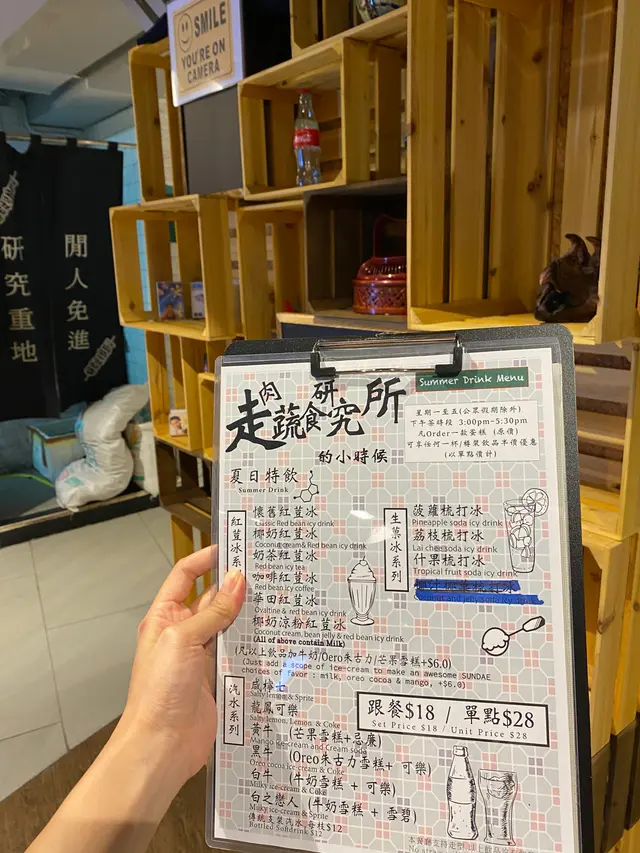 SMILE
YOU'RE ON
CAMERA
閒人免進
研究重地
走肉蔬食研究所
的小時候
Summer Drink Menu
星期一至五(公眾假期除外)
下午茶時段 3:00pm-5:30pm
凡Order一款蛋糕 (原價)
可享任何一杯/樽裝飲品半價優惠
(以單點價計)
夏日特飲
Summer Drink
紅荳冰系列
懷舊紅荳冰
Classic Red bean icy drink
椰奶紅荳冰
Coconut cream& Red bean icy drink
奶茶紅荳冰
Red bean icy tea
咖啡紅荳冰
Red bean icy coffee
華田紅荳冰
Ovaltine & red bean icy drink
椰奶涼粉紅荳冰
Coconut cream, bean jelly & red bean icy drink
(All of above contain Milk)
生菓冰系列
菠蘿梳打冰
Pineapple soda icy drink
荔枝梳打冰
Lai chee soda icy drink
什果梳打冰
Tropical fruit soda icy drink
(凡以上飲品加牛奶/Oero朱古力/芒果雪糕+$6.0)
(Just add a scope of ice-cream to make an awesome SUNDAE
choices of favor : milk, oreo cocoa & mango, +$6.0)
汽水系列
咸檸七
Salty lemon & Sprite
龍鳳可樂
Salty lemon, Lemon & Coke
黃牛 (芒果雪糕+忌廉)
Mango ice-cream and Cream soda
黑牛 (Oreo朱古力雪糕+ 可樂)
Oreo cocoa ice-cream & Coke
白牛 (牛奶雪糕 + 可樂)
Milky ice-cream & Coke
白之戀人 (牛奶雪糕 + 雪碧)
Milky ice-cream & Sprite
傳統支裝汽水 每枝$12
Bottled Softdrink $12
跟餐$18 / 單點$28
Set Price $18 / Unit Price $28